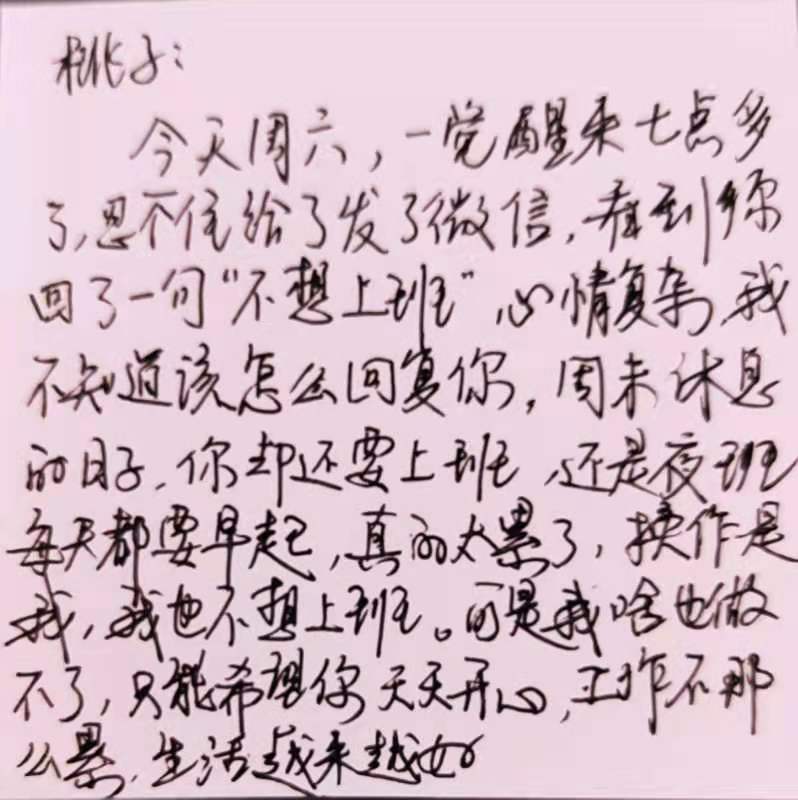 桃子：
今天周六，一觉醒来七点多
了，忍不住给了发了微信，看到你
回了一句“不想上班”，心情复杂，我
不知道该怎么回复你，周末休息
的日子，你却还要上班，还是夜班
每天都要早起，真的太累了，换作是
我，我也不想上班。可是我啥也做
不了，只能希望你天天开心，工作不那
么累，生活越来越好